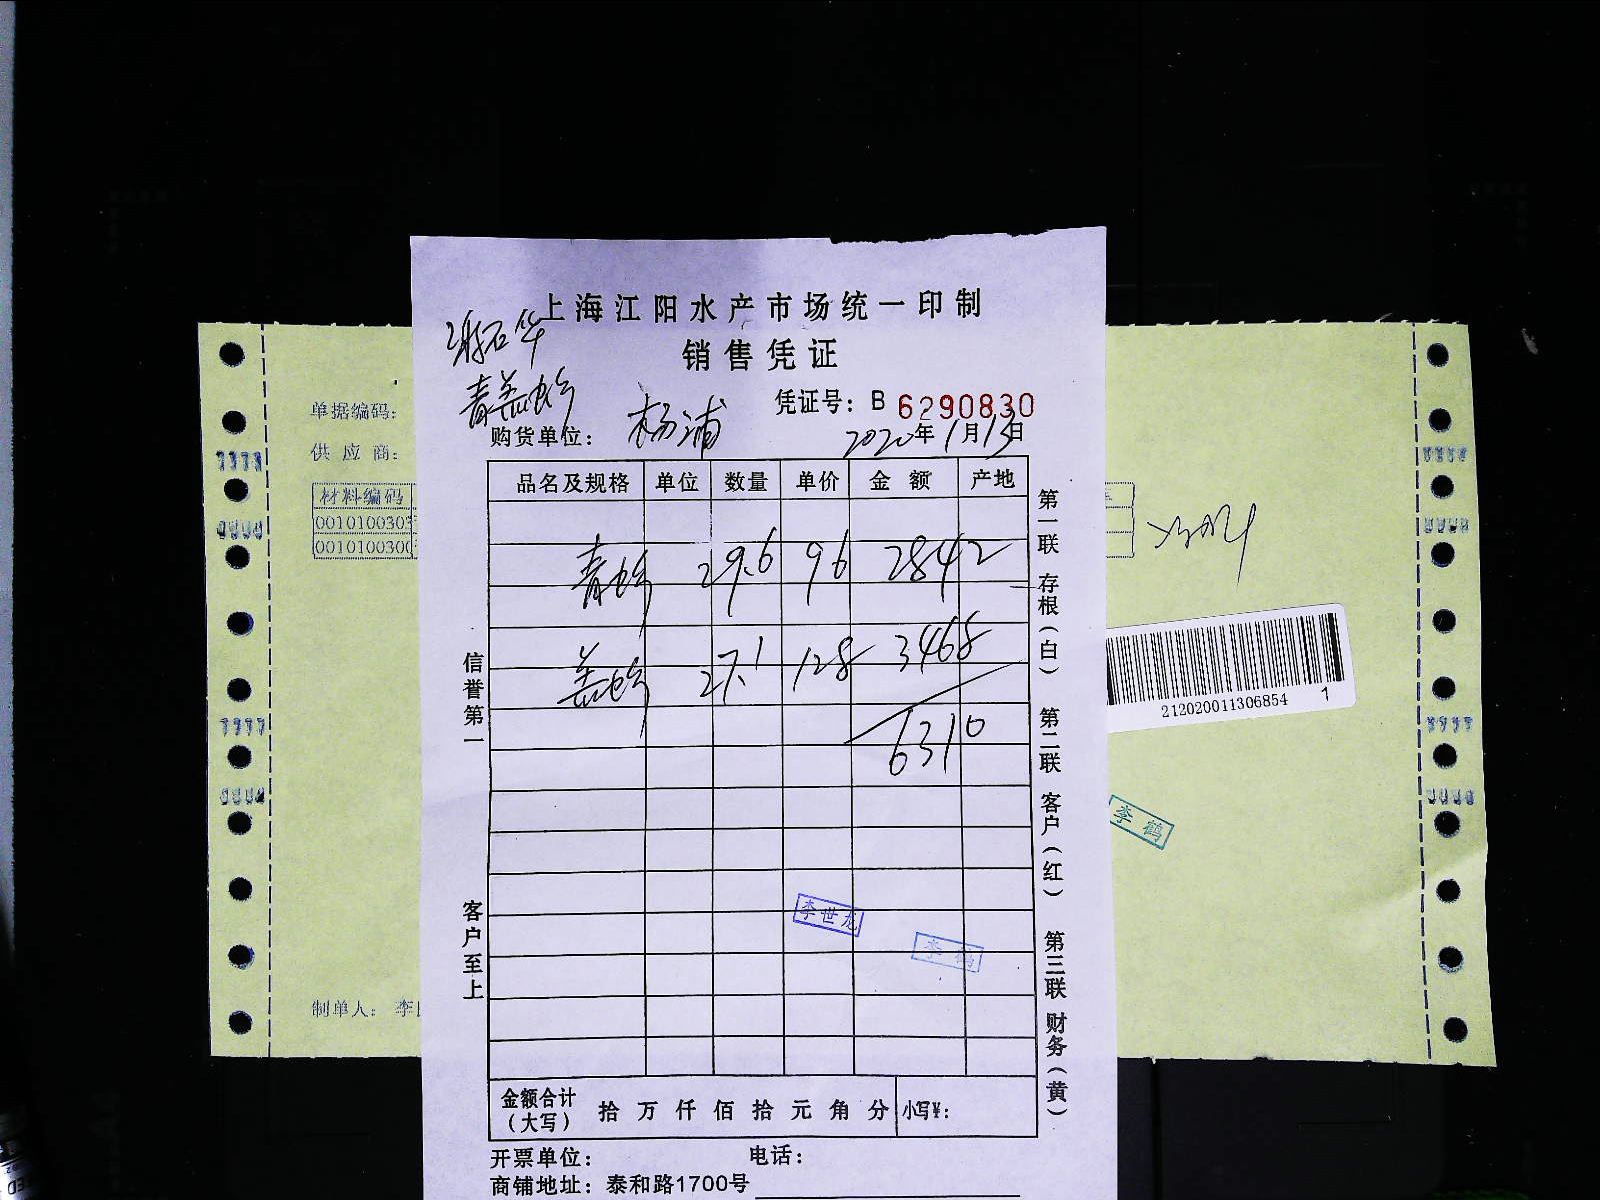 上海江阳水产市场统一印制
谢石华
销售凭证
青盖蛤
凭证号：B 6290830
购货单位：杨浦
2020年1月13日
品名及规格 单位 数量 单价 金额 产地
青蛤 29.6 96 2842
盖蛤 27.1 128 3468
6310
金额合计（大写） 拾 万 仟 佰 拾 元 角 分 小写¥：
开票单位： 电话：
商铺地址：泰和路1700号
信誉第一
客户至上
第一联 存根（白） 第二联 客户（红） 第三联 财务（黄）
李世龙
李鹤
单据编码：
供应商：
材料编码
0010100303
001010030
制单人：李
212020011306854 1
李鹤